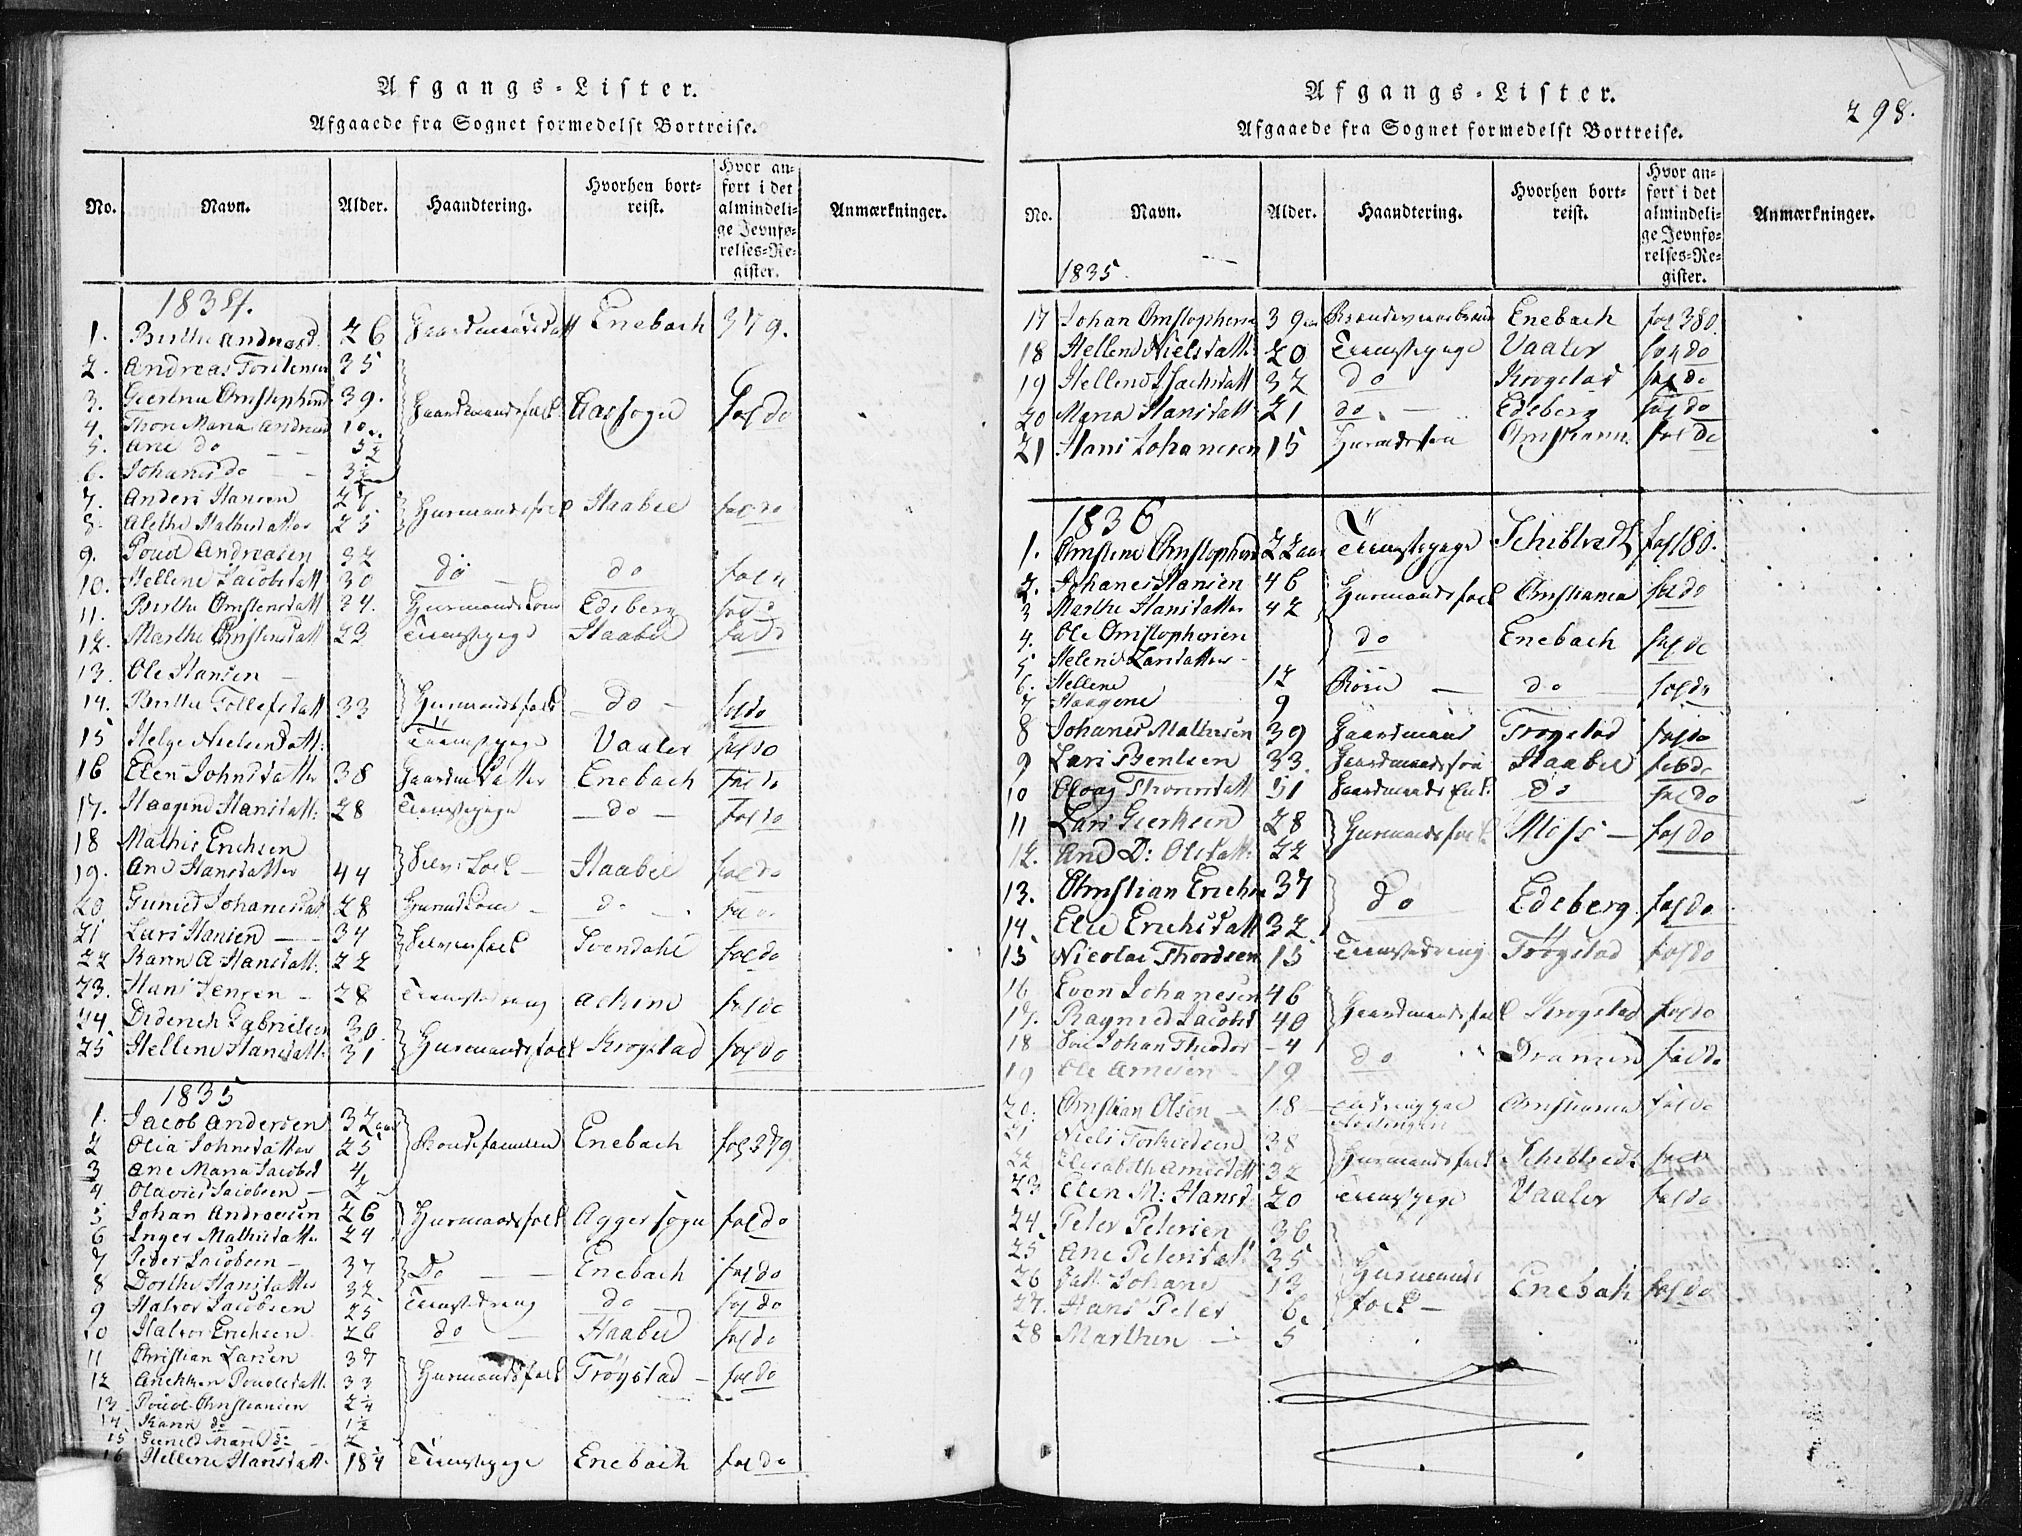 Afgangs-Lister.
Afgaaede fra Sognet formedelst Bortreise.
No. Navn. Alder. Haandtering. Hvorhen bortreist. Hvor anført i det almindelige Jevnførelses-Register. Anmærkninger.
1834.
1. Berthe Andread. 26 Enebach 379.
2. Andreas Torstensen 35
3. Christophersd 39. Gaardmandsfolk Aassogn fol do
4. Thore Maria Andread 10
5. Ane do
6. Johanes do 3½
7. Anders Hansen 27 Huusmandsfolk Haabøl fol do
8. Alethe Mathisdatter 25
9. Pouel Andreasen 32 do do fol
10. Hellene Jacobsdatt 30
11. Berthe Christensdatt 34. Huusmandskone Edeberg fol do
12. Marthe Christensdatt 23 Tienestepige Haabøl fol do
13. Ole Hansen
14. Berthe Tollefsdatt 33 Huusmandsfolk do fol do
15 Helge Nielsendatt: Tienestepige Vaaler fol do
16 Elen Johnsdatter 38 Gaardm Datter Enebach fol do
17. Haagine Hansdatt: 28 Tienestepige do fol do
18 Mathis Erichsen
19. Ane Hansdatter 44 Haabøl fol do
20 Guned Johanesdat 28 Huusmkone do fol do
21 Lars Hansen 34 Svendahl fol do
22 Karin A Hansdatt. 22
23. Hans Jensen 28 Tienestedreng fol do
24. Dederich Gabrielsen 30.
25 Hellene Hansdatt. 31 Huusmandsfolk Krogstad fol do
1835
1. Jacob Andersen 32 aar
2 Olia Johnsdatter 25 Bondefamilien Enebach fol 379
3 Ane Maria Jacobsd 4
4. Olavus Jacobsen 2
5 Johan Andreasen 26 Huusmandsfolk Aggersogn fol do
6 Inger Mathisdatte 24
7 Peder Jacobsen 37 Do Enebach fol do
8 Dorthe Hansdatter 32
9 Halvor Jacobsen 25 Tienestedreng do fol do
10 Halvor Erichsen 26 do Haabøl fol do
11 Christian Larsen 37
12 Anekken Pouelsdatt. 33 Huusmandsfolk Trøgstad fol do
13 Pouel Christiansen 2¼
14 Karen do 1½
15 Gunild Marie do 2
16 Hellene Hansdatt. 18 Tienestepige Enebach fol do
298.
Afgangs-Lister.
Afgaaede fra Sognet formedelst Bortreise.
No. Navn. Alder. Haandtering. Hvorhen bortreist. Hvor anført i det almindelige Jevnførelses-Register. Anmærkninger.
1835.
17 Johan Christophersen 39 aar Enebach fol 380.
18 Hellene Nielsdatt. 20 Tienestepige Vaaler fol do
19 Hellene Isachsdatt 32 do Krogstad fol do
20 Maria Hansdatt 21 do Edeberg fol do
21 Hans Johanesen 15 Huusmdssøn Christiania fol do
1836
1. Christine Christophersd 22 aar Tienestepige Schibtvedt fol 80.
2. Johanes Hansen 46 Huusmandsfolk Christiania fol do
3 Marthe Hansdatter 42
4. Ole Christophersen do Enebach fol do
5 Helene Larsdatter
6. Hellene 12 Børn do fol do
7 Haagene 9
8 Johanes Mathisen 39 Gaardmand Trøgstad fol do
9 Lars Bentsen 33. Gaardmandssøn Haabøl fol do
10 Thorersdatt 51 Gaardmands Enke do fol do
11 Lars Gierhsen 28 Huusmandsfolk Moss fol do
12. Ane D: Olsdatt. 22
13. Christian Erichsen 37 do Edeberg fol do
14. Elie Erichsdatt 32
15 Nicolai Thordsen 15 Tienestedreng Trøgstad fol do
16 Even Johanesen 46
17. Ragnied Jacobsd 40 Gaardmandsfolk Krogstad fol do
18 Søn Johan Theodor 4
19 Ole Arnesen 19 do Dramen fol do
20. Christian Olsen 18 Christiania fol do
21 Niels Torkildsen 38
22 Elisabeth Arnesdatt 32 Huusmandsfolk Schibtvedt fol do
23 Elen M: Hansd. 20 Tienestepige Vaaler fol do
24. Peter Petersen 36
25 Ane Petersdatt 35
26 Datt. Johane 13 Huusmands Enebak fol do
27. Hans Peter 6. folk
28 Marthen 5